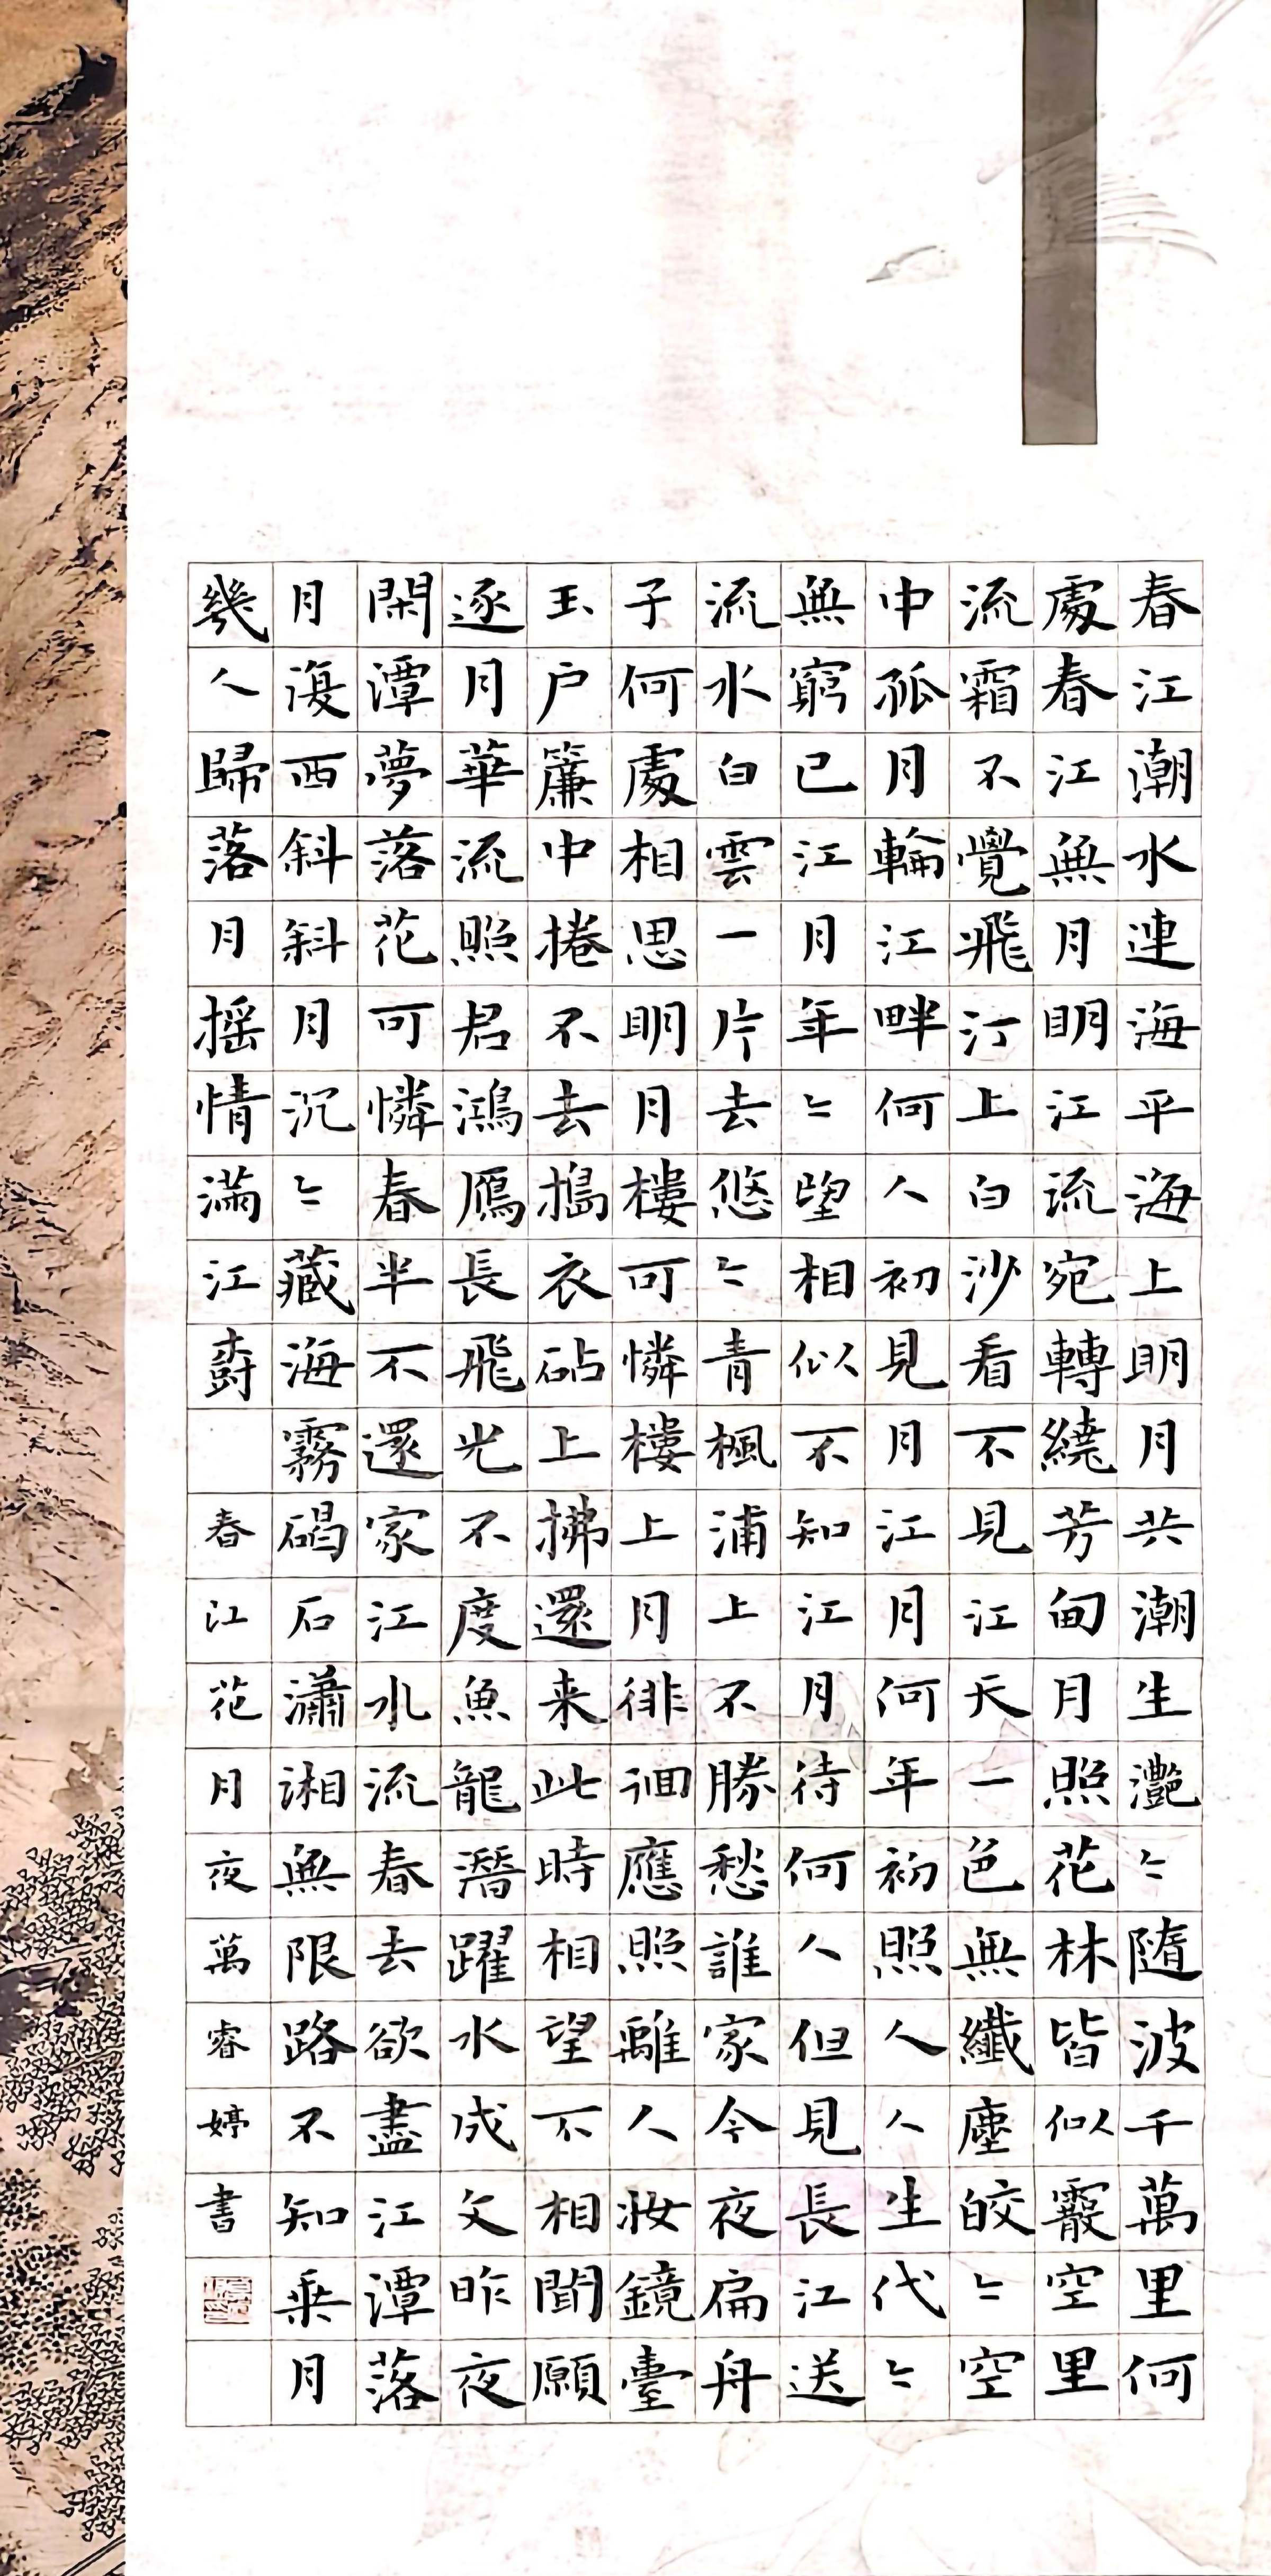 春江潮水連海平海上明月共潮生灔〻隨波千萬里何
處春江無月明江流宛轉繞芳甸月照花林皆似霰空里
流霜不覺飛汀上白沙看不見江天一色無纖塵皎〻空
中孤月輪江畔何人初見月江月何年初照人人生代〻
無窮已江月年〻望相似不知江月待何人但見長江送
流水白雲一片去悠〻青楓浦上不勝愁誰家今夜扁舟
子何處相思明月樓可憐樓上月徘徊應照離人妝鏡臺
玉户簾中捲不去搗衣砧上拂還来此時相望不相聞願
逐月華流照君鴻鴈長飛光不度魚龍潛躍水成文昨夜
閑潭夢落花可憐春半不還家江水流春去欲盡江潭落
月復西斜斜月沉〻藏海霧碣石瀟湘無限路不知乗月
幾人歸落月摇情滿江樹 春江花月夜萬睿婷書